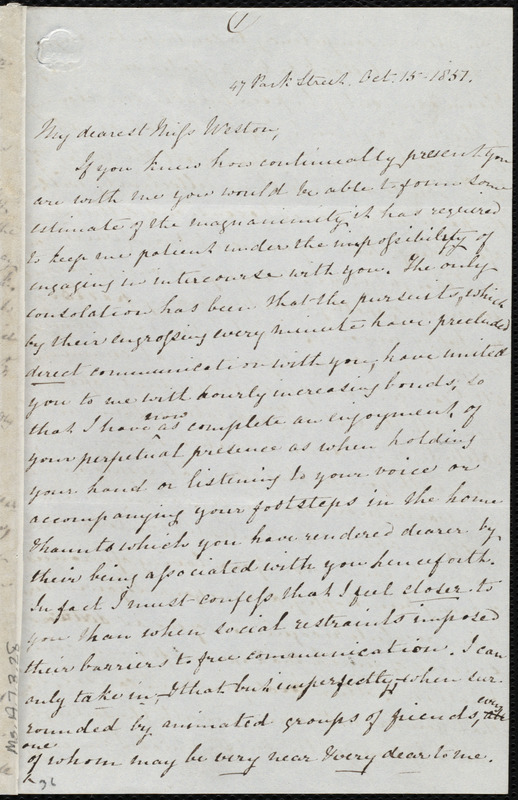 (1
47 Park Street. Oct. 15 - 1851.
My dearest Miss Weston,
If you knew how continually present you
are with me you would be able to form some
estimate of the magnanimity it has required
to keep me patient under the impossibility of
engaging in intercourse with you. The only
consolation has been that the pursuits, which
by their engrossing every minute have precluded
direct communication with you, have united
you to me with hourly increasing bonds; so
that I have now as complete an enjoyment of
your perpetual presence as when holding
your hand or listening to your voice or
accompanying your footsteps in the home
haunts which you have rendered dearer by
their being associated with you henceforth.
In fact I must confess that I feel closer to
you than when social restraints imposed
their barriers to free communication. I can
only take in, & that but imperfectly, when sur-
rounded by animated groups of friends, every
one
of whom may be very near & very dear to me.
Ms.A.7.2.28